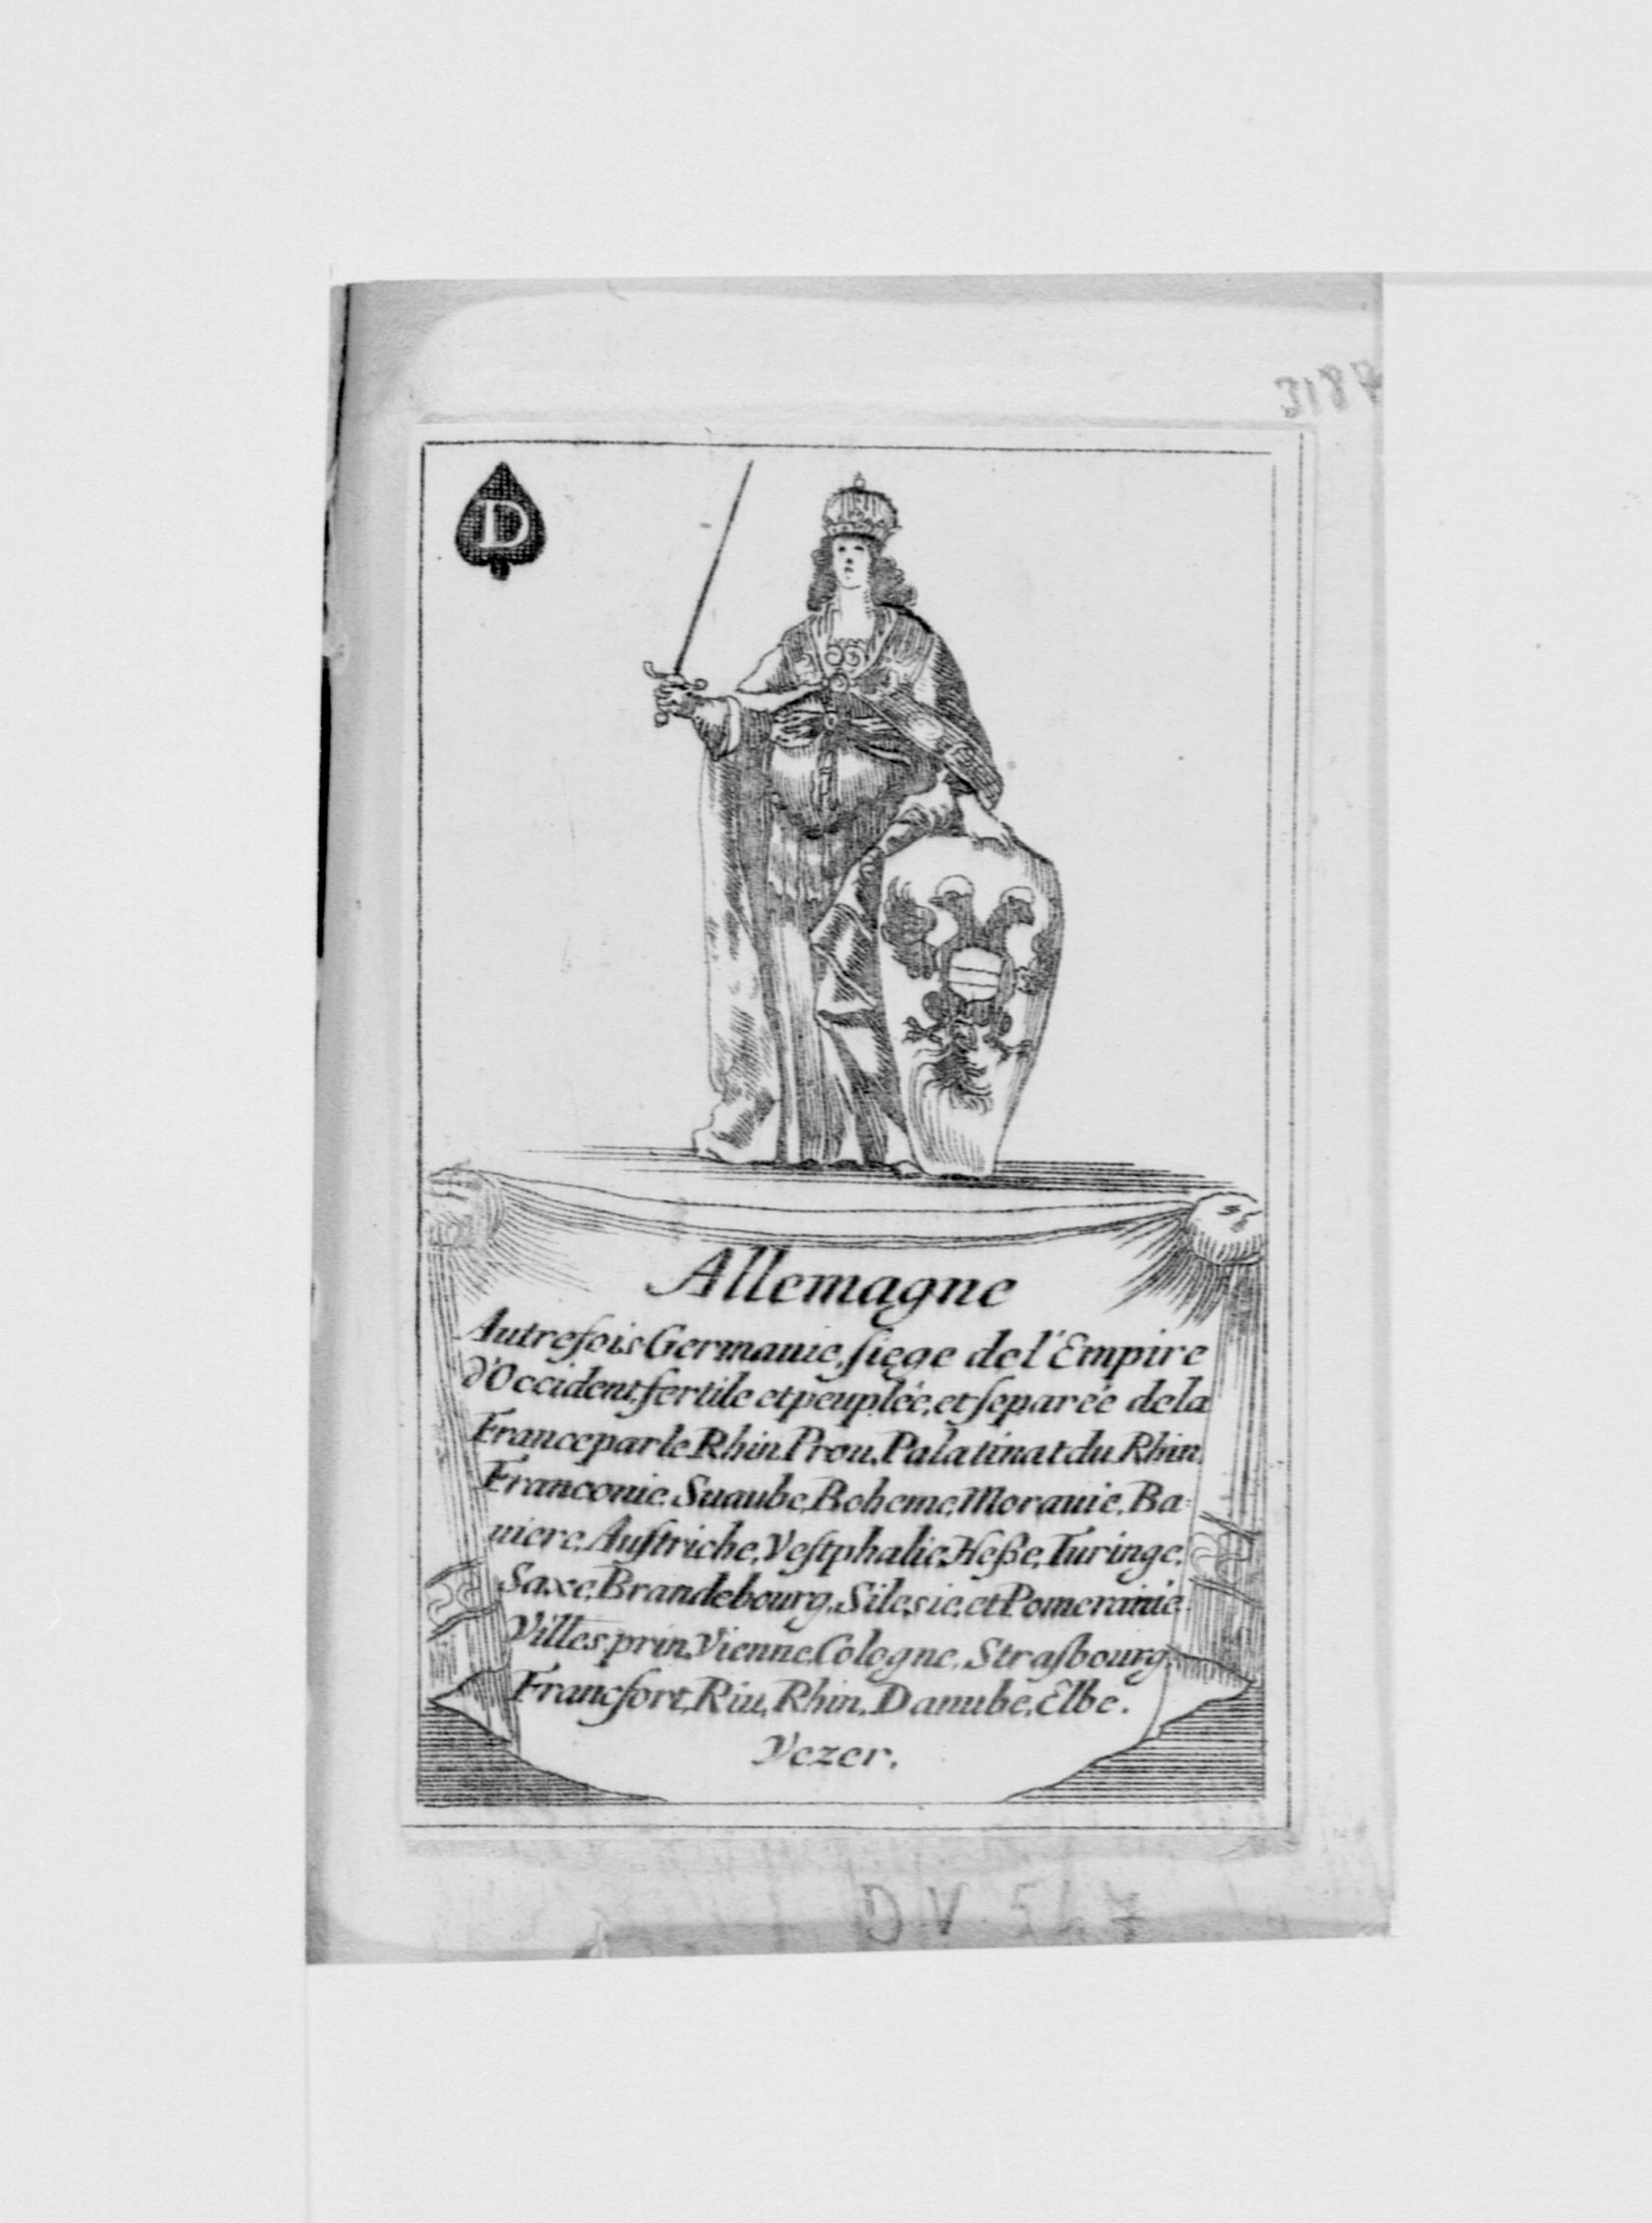 3187
D
Allemagne
Autrefois Germanie, siege de l'Empire
d'Occident, fertile et peuplée, et separée de la
France par le Rhin. Prou. Palatinat du Rhin,
Franconie, Suaube, Boheme, Morauie, Ba-
uiere, Austriche, Vestphalie, Heße, Turinge,
Saxe, Brandebourg, Silesie, et Pomeranie.
Villes prin. Vienne, Cologne, Strasbourg,
Francfort, Riu, Rhin, Danube, Elbe.
Vezer.